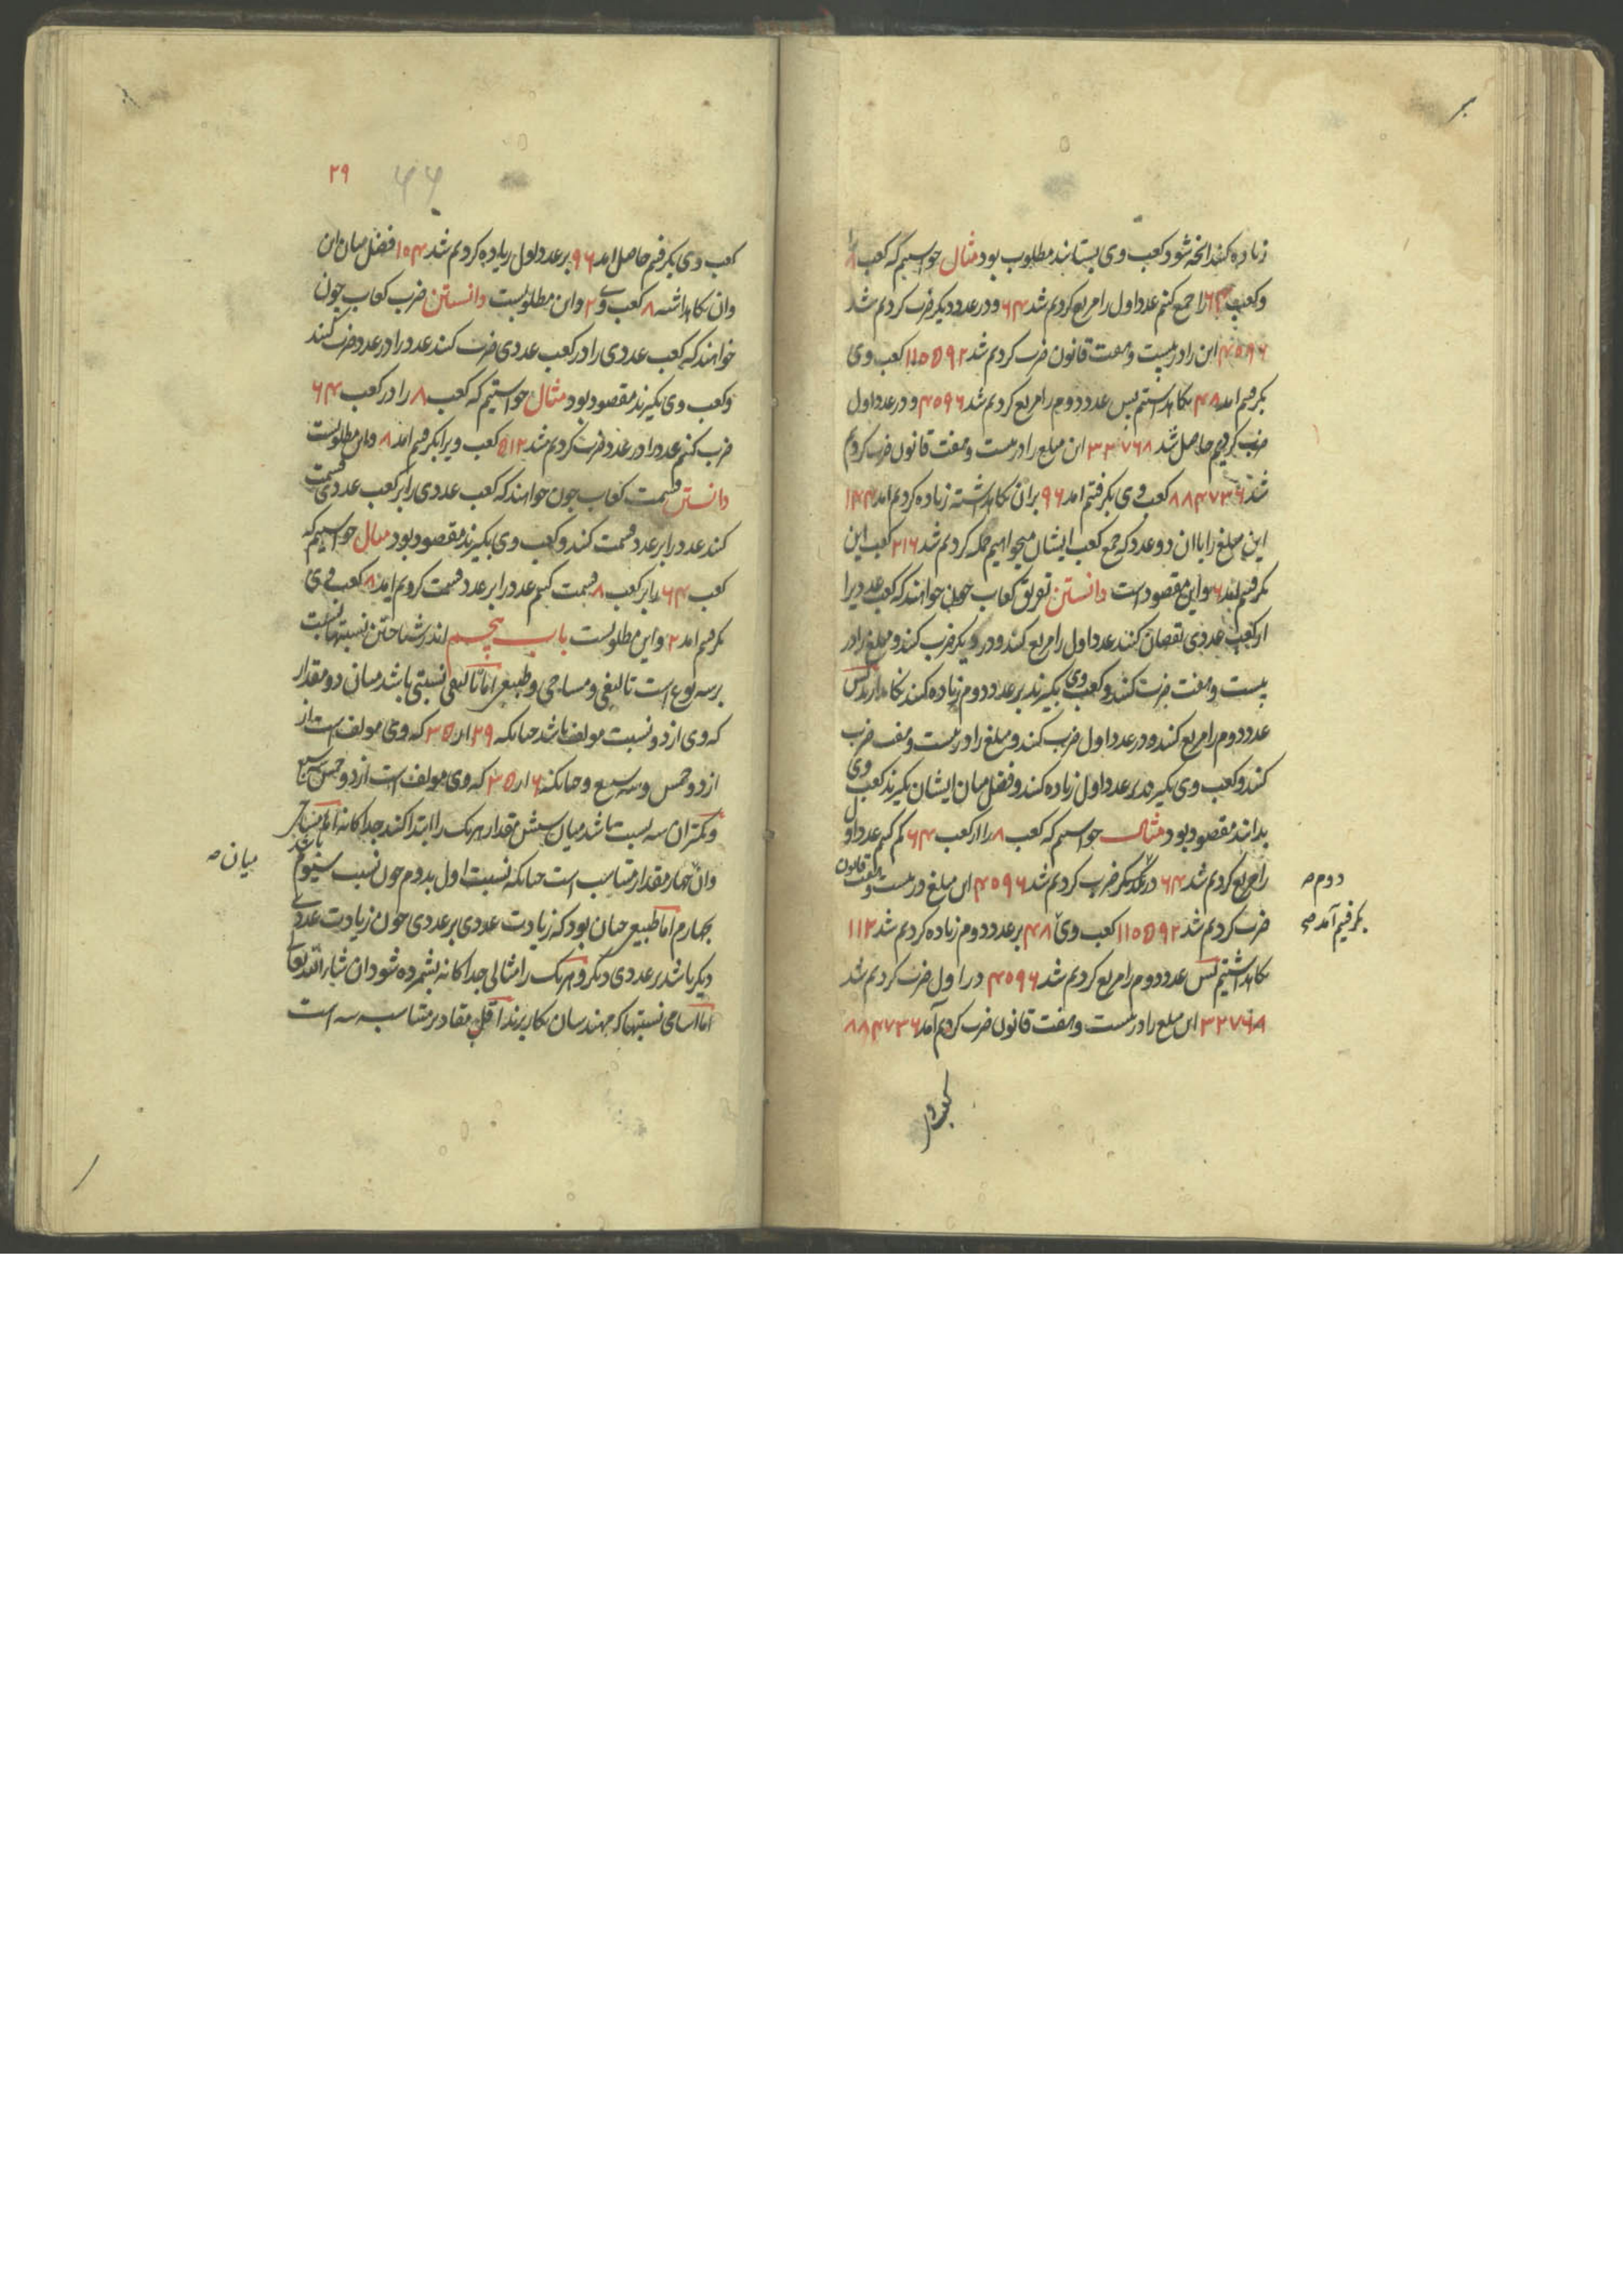 زیاده کنند انچه شود کعب وی بستانند مطلوب بود مثال خواستیم که کعب ۸ را
و کعب ۶۴ را جمع کنیم عدد اول را مربع کردیم شد ۶۴ و در عدد دیکر ضرب کردیم شد
۴۰۹۶ این را در بیست و هفت قانون ضرب کردیم شد ۱۱۰۵۹۲ کعب وی
بکرفتیم امد ۴۸ نکاهداشتیم پس عدد دوم را مربع کردیم شد ۴۰۹۶ و در عدد اول
ضرب کردیم حاصل شد ۳۲۷۶۸ این مبلغ را در بیست و هفت قانون ضرب کردیم
شد ۸۸۴۷۳۶ کعب وی بکرفتیم امد ۹۶ بران نکاهداشته زیاده کردیم امد ۱۴۴
این مبلغ را باان دو عدد که جمع کعب ایشان میخواهیم جمله کردیم شد ۲۱۶ کعب این
بکرفتیم امد ۶ و این مقصود است دانستن تفریق کعاب چون خواهند که کعب عددیرا
از کعب عددی نقصان کنند عدد اول را مربع کنند و در دیکر ضرب کنند و مبلغ را در
بیست و هفت ضرب کنند و کعب وی بکیرند بر عدد دوم زیاده کنند نکاهدارند پس
عدد دوم را مربع کنند و در عدد اول ضرب کنند و مبلغ را در بیست و هفت ضرب
کنند و کعب وی بکیرند بر عدد اول زیاده کنند و فضل میان ایشان بکیرند کعب وی
بدانند مقصود بود مثال خواستیم که کعب ۸ را از کعب ۶۴ کم کنیم عدد اول
را مربع کردیم شد ۶۴ در عدد دیکر ضرب کردیم شد ۴۰۹۶ این مبلغ در بیست و هفت قانون
دوم صح
ضرب کردیم شد ۱۱۰۵۹۲ کعب وی ۴۸ بر عدد دوم زیاده کردیم شد ۱۱۲
بکرفتیم آمد صح
نکاهداشتیم پس عدد دوم را مربع کردیم شد ۴۰۹۶ در اول ضرب کردیم شد
۳۲۷۶۸ این مبلغ را در بیست و هفت قانون ضرب کردیم آمد ۸۸۴۷۳۶
کعب وی
۲۹
۶۶
کعب وی بکرفتیم حاصل امد ۹۶ بر عدد اول زیاده کردیم شد ۱۰۴ فضل میان این
وان نکاهداشته ۸ کعب وی ۲ و این مطلوبست دانستن ضرب کعاب چون
خواهند که کعب عددی را در کعب عددی ضرب کنند عدد را در عدد ضرب کنند
و کعب وی بکیرند مقصود بود مثال خواستیم که کعب ۸ را در کعب ۶۴
ضرب کنیم عدد را در عدد ضرب کردیم شد ۵۱۲ کعب ویرا بکرفتیم امد ۸ و این مطلوبست
دانستن قسمت کعاب چون خواهند که کعب عددی را بر کعب عددی قسمت
کنند عدد را بر عدد قسمت کنند و کعب وی بکیرند مقصود بود مثال خواستیم که
کعب ۶۴ را بر کعب ۸ قسمت کنیم عدد را بر عدد قسمت کردیم امد ۸ کعب وی
بکرفتیم امد ۲ و این مطلوبست باب پنجم اندر شناختن نسبتها نسبت
بر سه نوع است تالیفی و مساحی و طبیعی اما تالیفی نسبتی باشد میان دو مقدار
که وی از دو نسبت مولف باشد چنانکه ۲۹ از ۳۵ که وی مولف است از
از دو خمس و سه سبع و چنانکه ۶ از ۳۵ که وی مولف است از دو خمس سه سبع
و کمتران سه نسبت باشد میان شش مقدار هریک را ابتدا کنند جداکانه اما مساحی
وان چهار مقدار متناسب است چنانکه نسبت اول بدوم چون نسبت سیوم باشد
میان صح
بچهارم اما طبیعی چنان بود که زیادت عددی بر عددی چون زیادت عددی
دیکر باشد بر عددی دیکر و هریک را مثالی جداکانه بشمرده شود ان شاء الله تعالی
اما اسامی نسبتها که مهندسان بکار برند اقل مقادیر متناسبه سه است